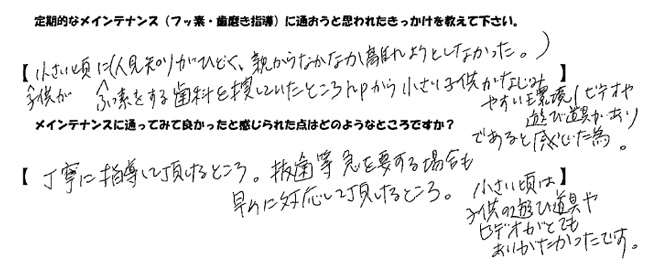 定期的なメインテナンス（フッ素・歯磨き指導）に通おうと思われたきっかけを教えて下さい。
【小さい頃に（人見知りがひどく、親からなかなか離れようとしなかった。）】
子供が ふっ素をする歯科を探していたところHPから小さい子供がなじみ
やすい環境（ビデオや
遊び道具があり
であると感じた為。
メインテナンスに通ってみて良かったと感じられた点はどのようなところですか？
【丁寧に指導して頂けるところ。抜歯等急を要する場合も】
早めに対応して頂けるところ。
小さい頃は
子供の遊び道具や
ビデオがとても
ありがたかったです。